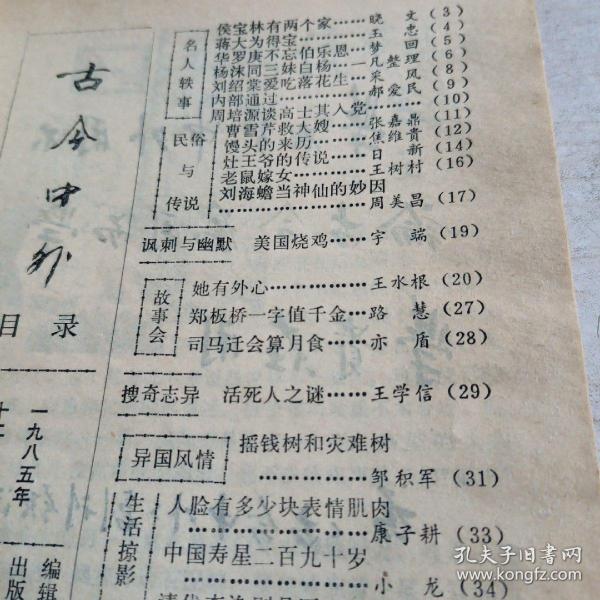 古今中外
目录
一九八五年
十二
编辑
出版
名人轶事
侯宝林有两个家……晓文(3)
蒋大为得宝……玉忠(4)
华罗庚不忘伯乐恩……梦回(5)
杨沫同三妹白杨……一凡整理(6)
刘绍棠爱吃落花生……采风(8)
内部通过……郝爱民(9)
周培源谈高士其入党……(10)
民俗与传说
曹雪芹救大嫂……张嘉鼎(11)
馒头的来历……焦维贵(12)
灶王爷的传说……日新(14)
老鼠嫁女……王树村(16)
刘海蟾当神仙的妙因
……周美昌(17)
讽刺与幽默 美国烧鸡……宇端(19)
故事会
她有外心……王水根(20)
郑板桥一字值千金…路慧(27)
司马迁会算月食……亦盾(28)
搜奇志异 活死人之谜……王学信(29)
异国风情
摇钱树和灾难树
……邹积军(31)
生活掠影
人脸有多少块表情肌肉
……康子耕(33)
中国寿星二百九十岁
……小龙(34)
孔夫子旧书网
www.kongfz.com